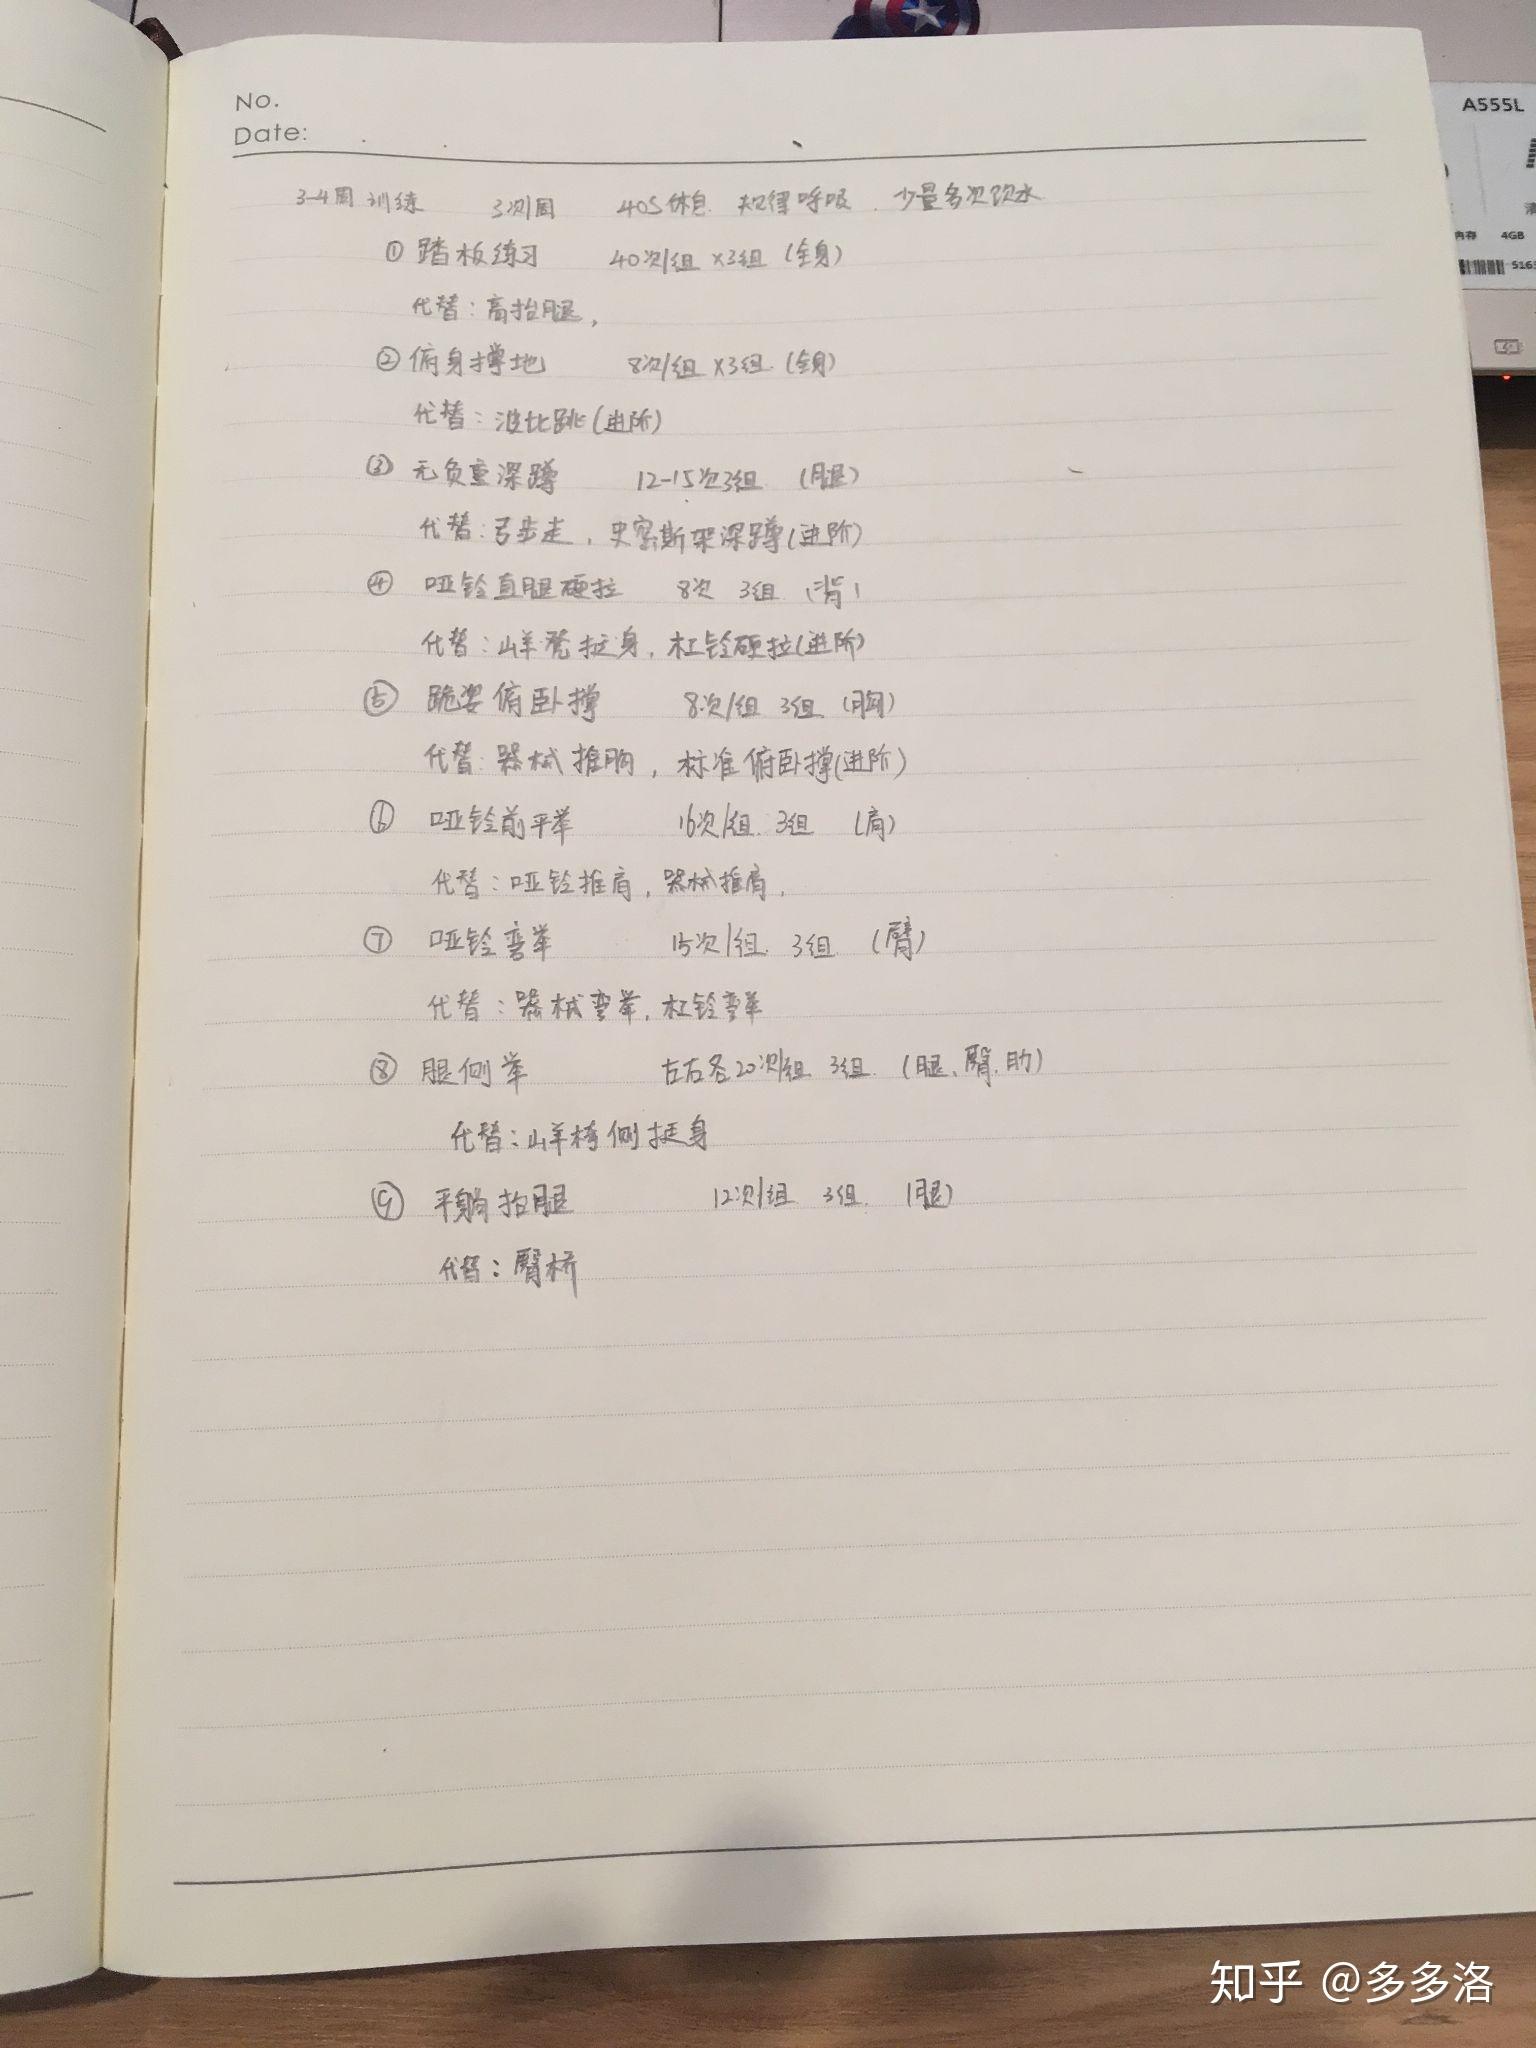 No.
Date:
3-4周训练 3次/周 40S休息 规律呼吸. 少量多次饮水
① 踏板练习 40次/组 ×3组 (全身)
代替：高抬腿,
② 俯身撑地 8次/组 ×3组. (全身)
代替：波比跳(进阶)
③ 无负重深蹲 12-15次3组 (腿)
代替：弓步走, 史密斯架深蹲(进阶)
④ 哑铃直腿硬拉 8次 3组 (背)
代替：山羊凳挺身, 杠铃硬拉(进阶)
⑤ 跪姿俯卧撑 8次/组 3组 (胸)
代替：器械推胸, 标准俯卧撑(进阶)
⑥ 哑铃前平举 16次/组. 3组 (肩)
代替：哑铃推肩, 器械推肩,
⑦ 哑铃弯举 15次/组. 3组 (臂)
代替：器械弯举, 杠铃弯举
⑧ 腿侧举 左右各20次/组 3组. (腿、臀、肋)
代替：山羊椅侧挺身
⑨ 平躺抬腿 12次/组 3组. (腿)
代替：臀桥
A555L
内存 4GB
知乎 @多多洛